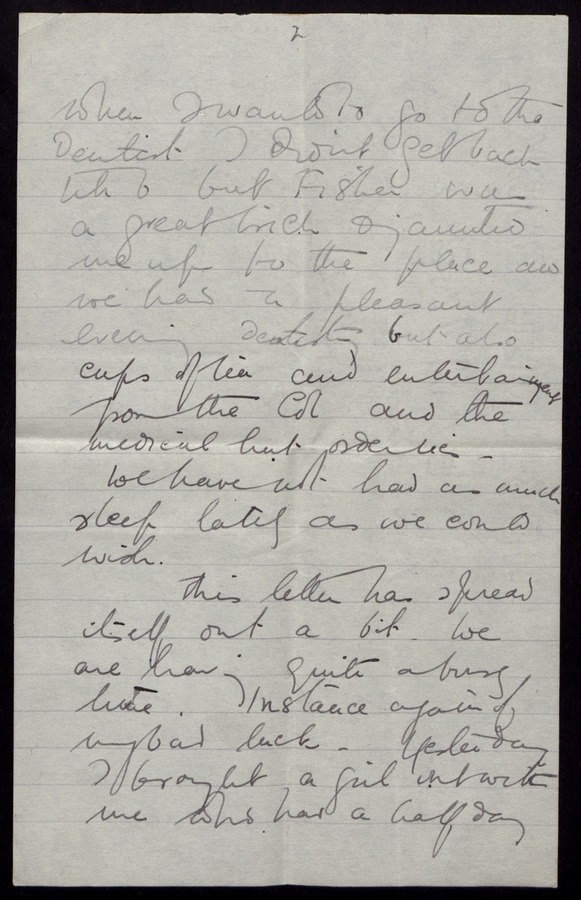 2
when I wanted to go to the
Dentist I didnt get back
till 6 but Fisher was
a great brick & jaunted
me up to the place and
we had a pleasant
evening dentisting but also
cups of tea and entertainment
from the Col and the
medical hut orderlies -
We have not had as much
sleep lately as we could
wish.
This letter has spread
itself out a bit. We
are having quite a busy
time. Instance again of
my bad luck - Yesterday
I brought a girl out with
me who had a half day